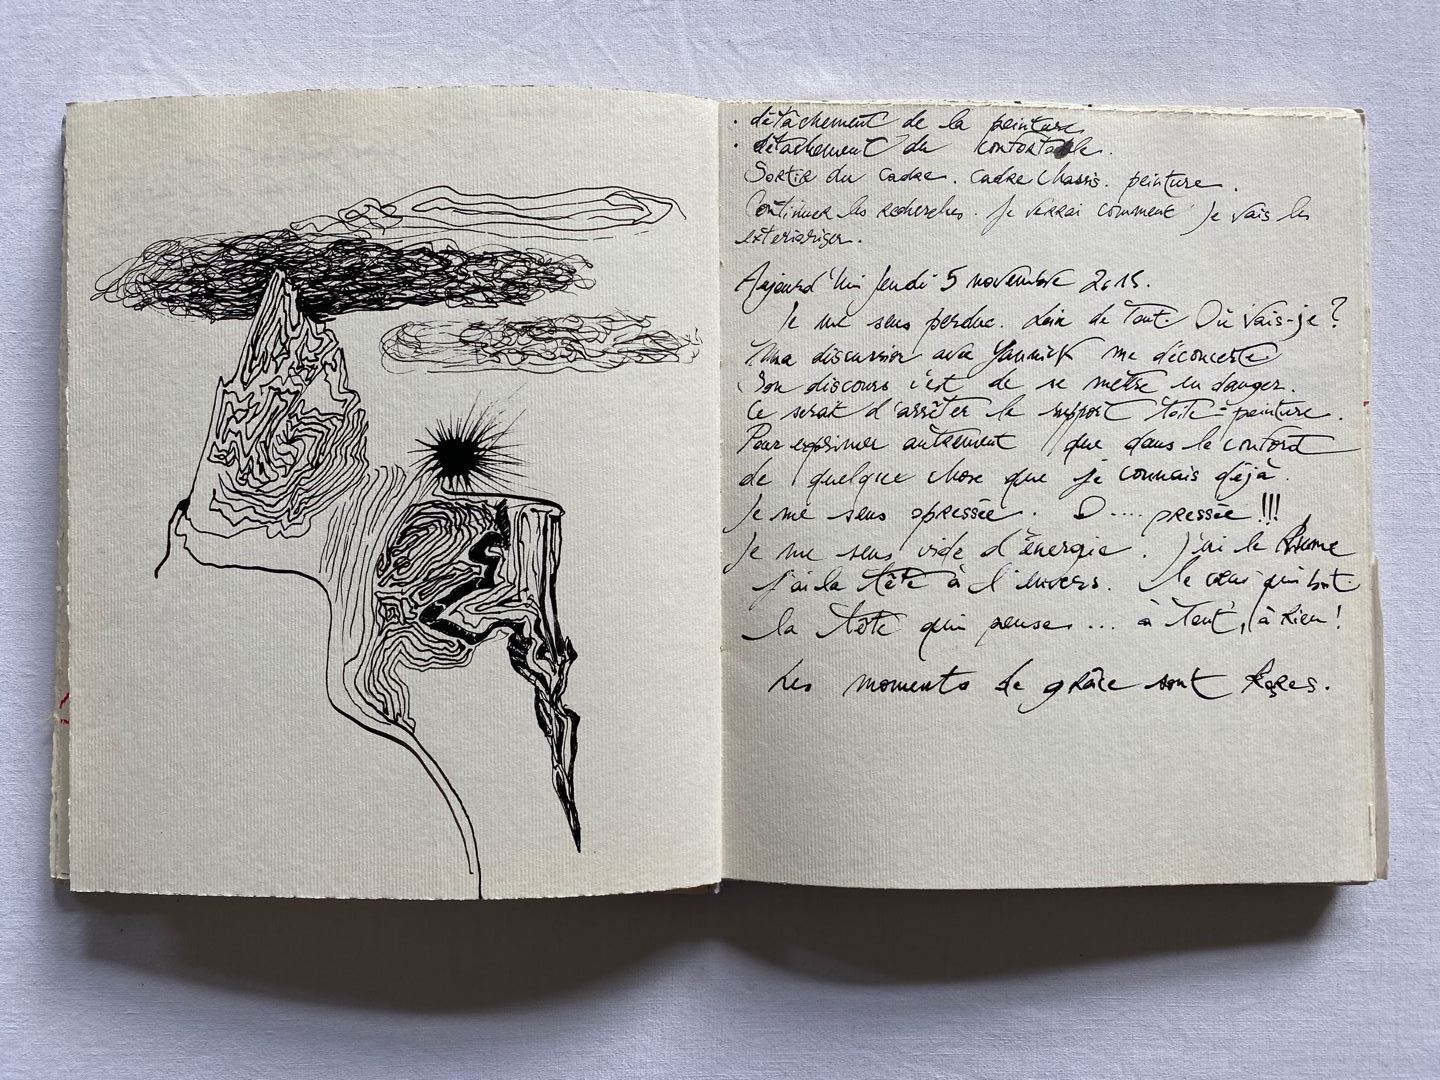 . détachement de la peinture
. détachement du confortable.
Sortir du cadre. cadre chassis. peinture.
Continuer les recherches. Je verrai comment je vais les
exterioriser.
Aujourd'hui jeudi 5 novembre 2015.
Je me sens perdue. Loin de tout. Où vais-je ?
Une discussion avec Yannick me déconcerte
Son discours c'est de se mettre en danger.
Ce serait d'arrêter le support toile = peinture.
Pour exprimer autrement que dans le confort
de quelque chose que je connais déjà.
Je me sens opressée. O.... pressée !!!
Je me sens vide d'énergie. J'ai le Rhume
j'ai la tête à l'envers. le coeur qui bat.
la tête qui pense ... à tout, à Rien !
Les moments de grâce sont Rares.